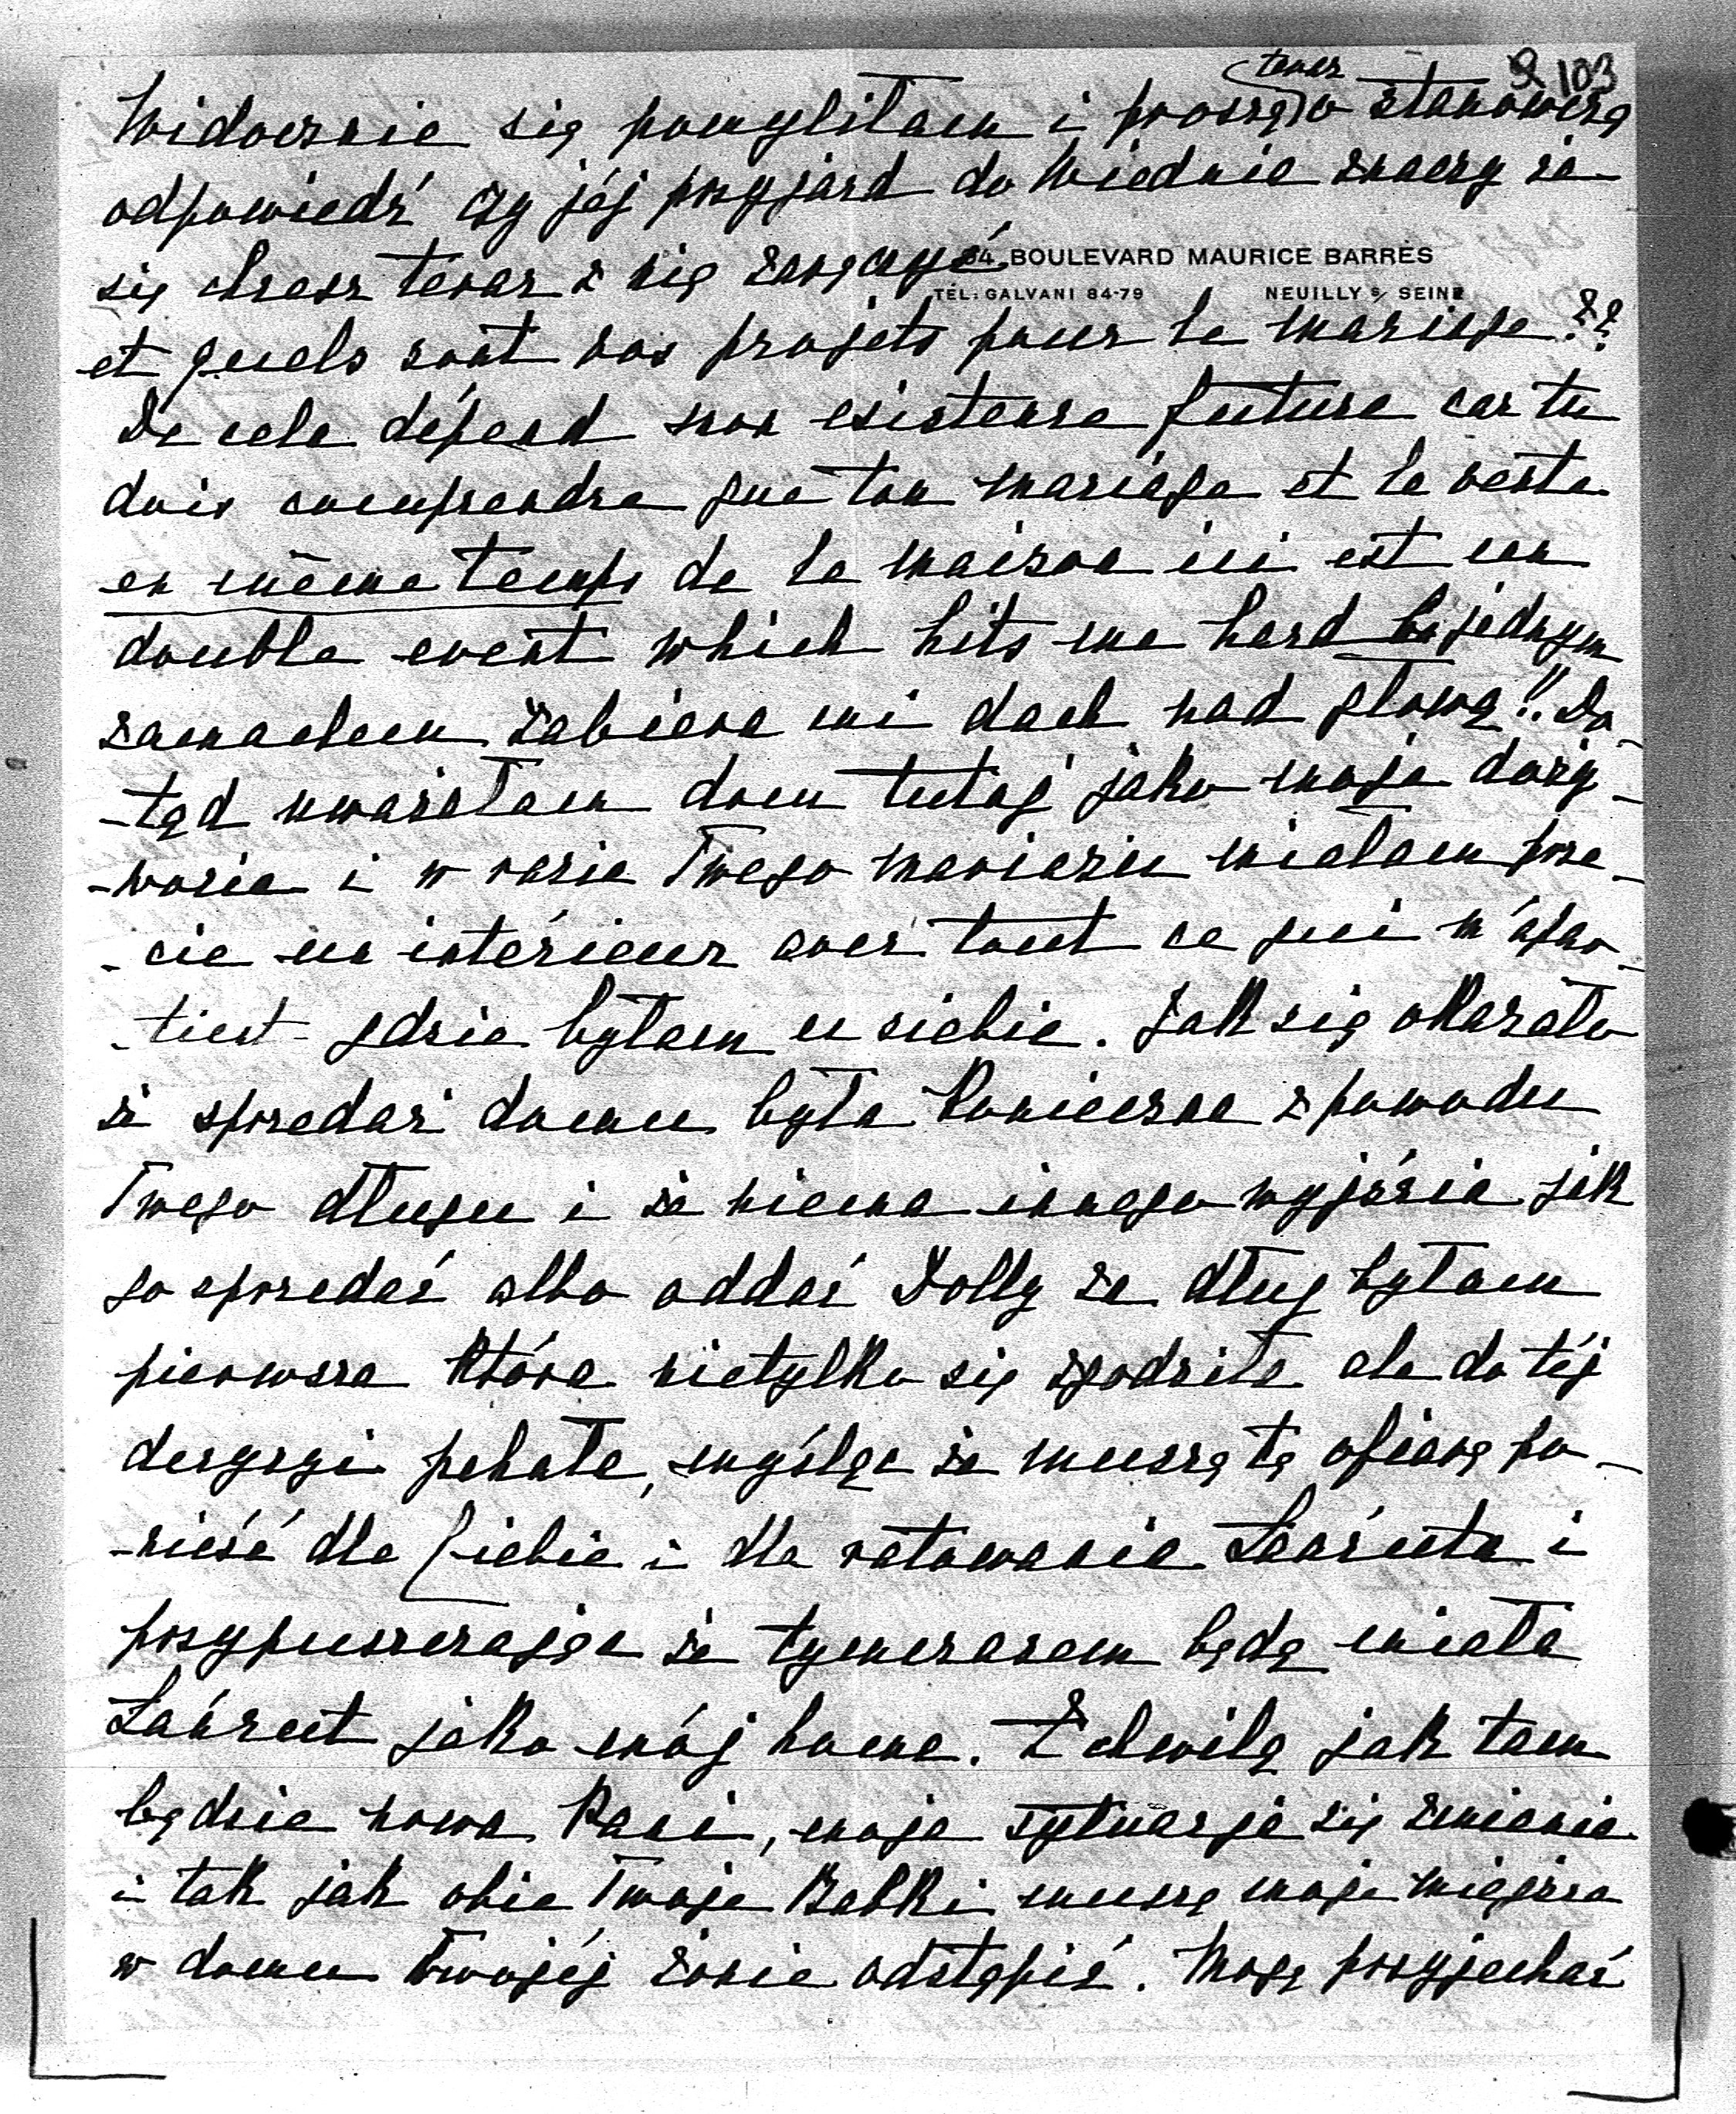 teraz 9 103
Widocznie się pomyliłam i proszę o stanowczą
odpowiedź czy jéj przyjazd do Wiednia znaczy że
się chcesz teraz z nią zaręczyć
64, BOULEVARD MAURICE BARRÈS
TÉL: GALVANI 84-79 NEUILLY S/ SEINE
et quels sont vos projets pour le mariage???
De cela dépend mon existence future car tu
dois comprendre que ton mariage et la vente
en même temps de la maison ici est un
double event which hits me hard bo jednym
zamachem zabiera mi dach nad głową!! Do-
-tąd uważałam dom tutaj jako moje doży-
-wocie i w razie Twego mariażu miałam prze-
-cie un intérieur avec tout ce qui m'apar-
-tient gdzie byłam u siebie. Jak się okazało
że sprzedaż domu była konieczna z powodu
Twego długu i że niema innego wyjścia jak
go sprzedać albo oddać Dolly za dług byłam
pierwsza która nietylko się zgodziła ale do téj
decyzyi pchała, myśląc że muszę tę ofiarę po-
-nieść dla Ciebie i dla ratowania Łańcuta i
przypuszczając że tymczasem będę miała
Łańcut jako mój home. Z chwilą jak tam
będzie nowa Pani, moja sytuacja się zmienia
i tak jak obie Twoje Babki muszę moje miejsce
w domu Twojéj żonie odstąpić. Mogę przyjechać